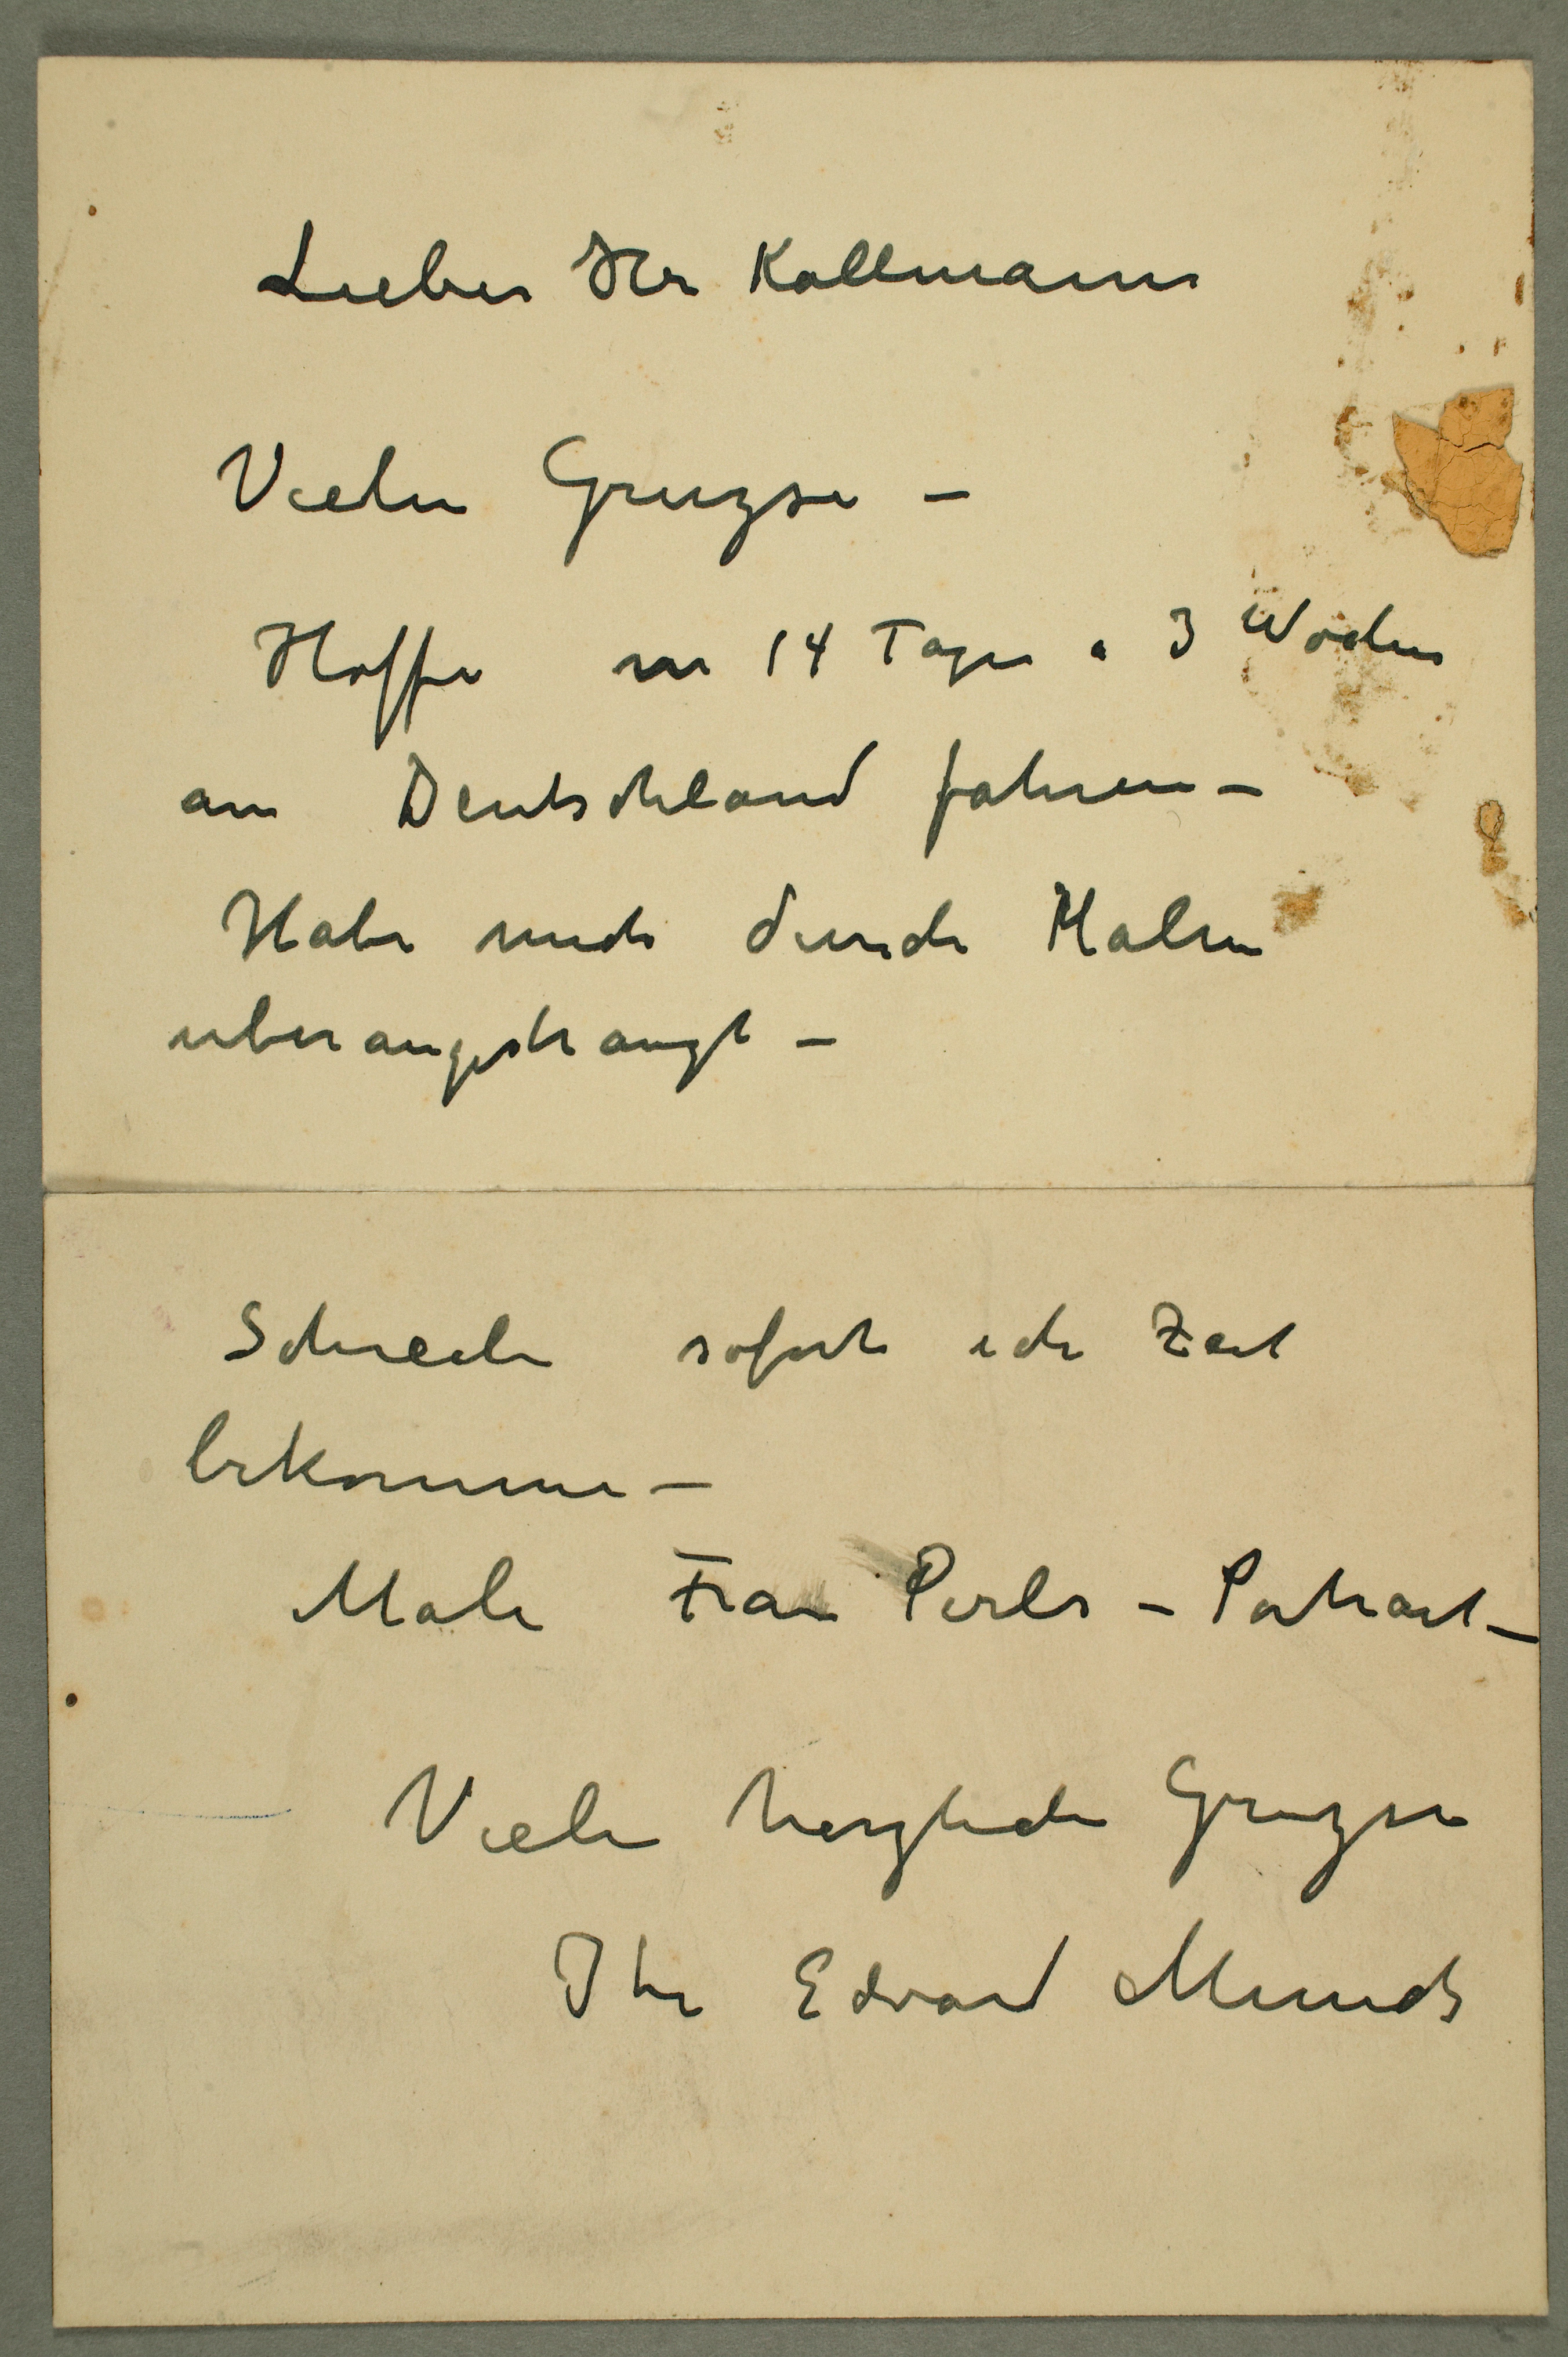 Lieber Hr Kollmann
Vielen Gruzse –
Hoffe in 14 Tage a 3 Wochen
an Deutschland fahren –
Habe mich durch Malen
uberangestrangt –
Schreibe sofort ich Zeit
bekomme –
Male Frau Perls – Portrait –
Viele herzliche Gruzse
Ihr Edvard Munch